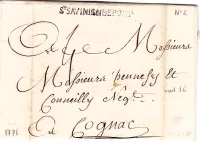 ST SAVINIENDEPORT
N° 2
A Messieurs
Messieurs hennessy et
Connelly Neg.ts
A Cognac
1771